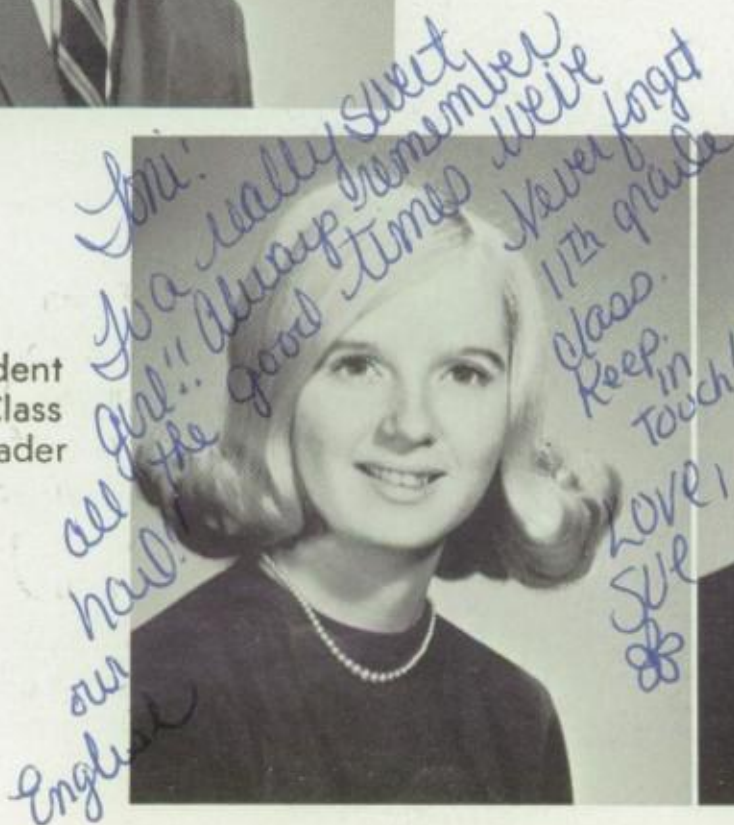 dent
Class
ader
Toni!
To a really sweet
girl!! Always remember
all the good times we've
had! Never forget
our 11th grade
English class.
Keep
in
Touch!
Love,
Sue